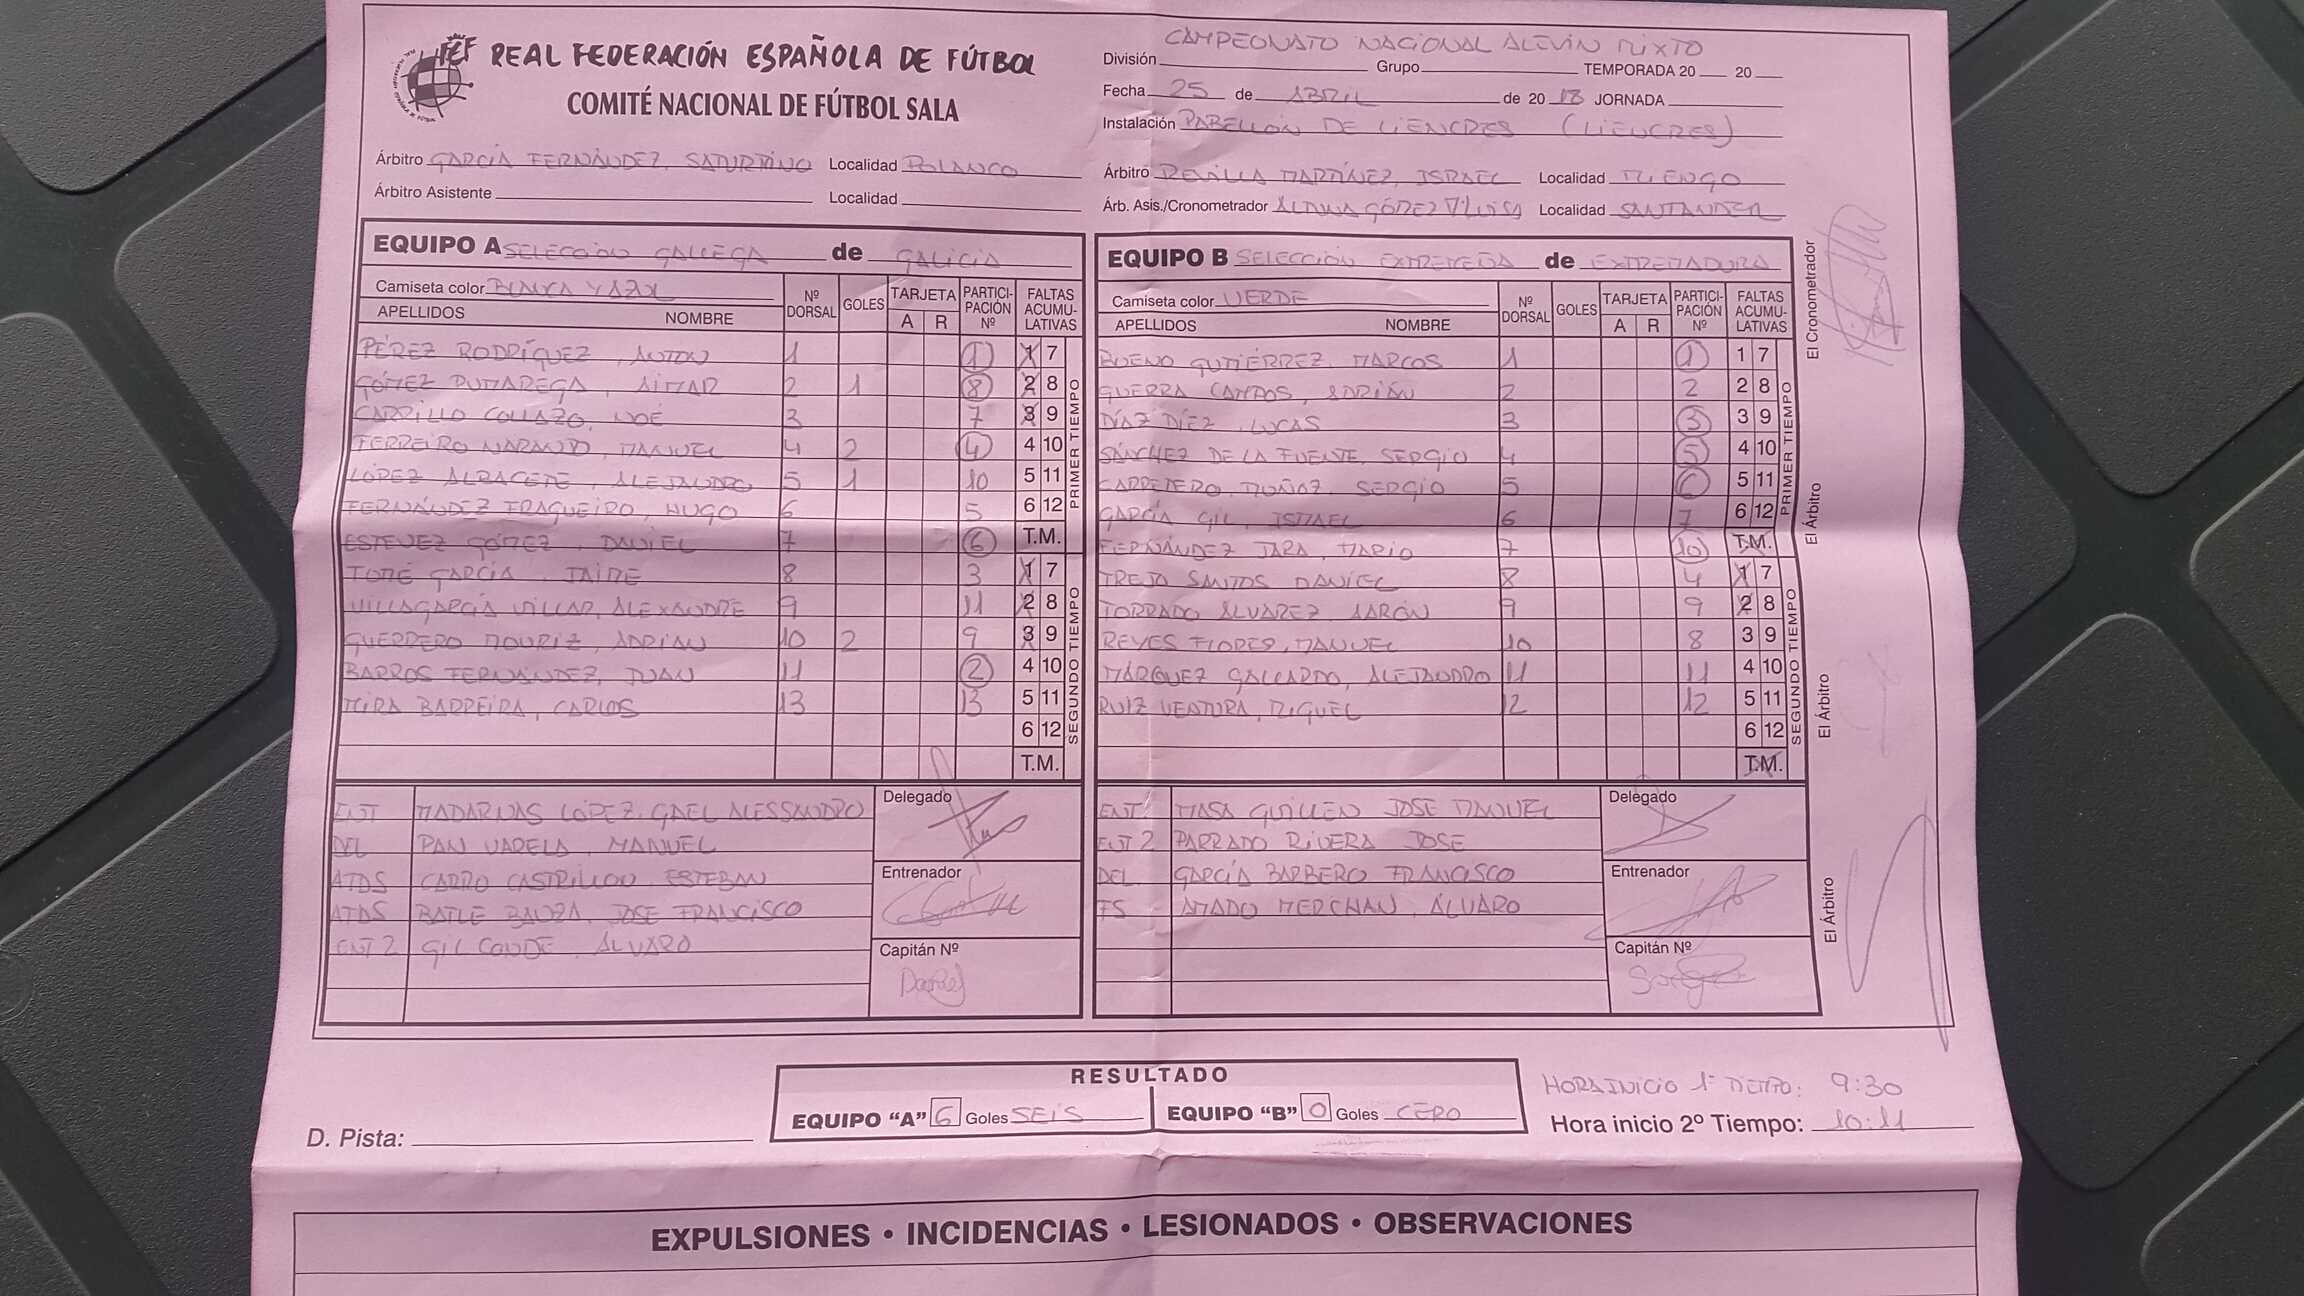 REAL FEDERACIÓN ESPAÑOLA DE FÚTBOL
COMITÉ NACIONAL DE FÚTBOL SALA
CAMPEONATO NACIONAL ALEVÍN MIXTO
División Grupo TEMPORADA 20 20
Fecha 25 de ABRIL de 20 18 JORNADA
Instalación PABELLÓN DE LIENCRES (LIENCRES)
Árbitro GARCÍA FERNÁNDEZ, Localidad POLANCO
Árbitro Asistente Localidad
Árbitro REVILLA MARTÍNEZ, ISRAEL Localidad MIENGO
Árb. Asis./Cronometrador GÓMEZ Mª LUISA Localidad SANTANDER
EQUIPO A SELECCIÓN GALLEGA de GALICIA
Camiseta color BLANCA Y AZUL
APELLIDOS NOMBRE Nº DORSAL GOLES TARJETA A R PARTICI-PACIÓN Nº FALTAS ACUMU-LATIVAS
PÉREZ RODRÍGUEZ, ANTON 1 1 1 7
GÓMEZ PUMAREGA, AIMAR 2 1 8 2 8
CARRILLO COLLAZO, NOÉ 3 7 3 9
FERREIRO NARANJO, MANUEL 4 2 4 4 10
LÓPEZ ALBACETE, ALEJANDRO 5 1 10 5 11
FERNÁNDEZ FRAGUEIRO, HUGO 6 5 6 12
ESTEVEZ GÓMEZ, DANIEL 7 6 T.M.
TOMÉ GARCÍA, JAIME 8 3 1 7
VILLAGARCÍA VILLAR, ALEXANDRE 9 11 2 8
GUERRERO MOURIZ, ADRIÁN 10 2 9 3 9
BARROS FERNÁNDEZ, JUAN 11 2 4 10
MIRA BARREIRA, CARLOS 13 13 5 11
6 12
T.M.
PRIMER TIEMPO
SEGUNDO TIEMPO
ENT MADARNAS LÓPEZ, GAEL ALESSANDRO
DEL PAN VARELA, MANUEL
ATDS CARRO CASTRILLON ESTEBAN
ATDS BATLE BAUZA, JOSE FRANCISCO
ENT 2 GIL CONDE, ÁLVARO
Delegado
Entrenador
Capitán Nº
Daniel
EQUIPO B SELECCIÓN EXTREMEÑA de EXTREMADURA
Camiseta color VERDE
APELLIDOS NOMBRE Nº DORSAL GOLES TARJETA A R PARTICI-PACIÓN Nº FALTAS ACUMU-LATIVAS
BUENO GUTIÉRREZ, MARCOS 1 1 1 7
GUERRA CAMPOS, ADRIÁN 2 2 2 8
DÍAZ DÍEZ, LUCAS 3 3 3 9
SÁNCHEZ DE LA FUENTE, SERGIO 4 5 4 10
CARRETERO MUÑOZ, SERGIO 5 6 5 11
GARCÍA GIL, ISMAEL 6 7 6 12
FERNÁNDEZ JARA, MARIO 7 10 T.M.
TREJO SANTOS DANIEL 8 4 1 7
TORRADO ÁLVAREZ, AARÓN 9 9 2 8
REYES FLORES, MANUEL 10 8 3 9
MÁRQUEZ GALLARDO, ALEJANDRO 11 11 4 10
RUIZ VENTURA, MIGUEL 12 12 5 11
6 12
T.M.
PRIMER TIEMPO
SEGUNDO TIEMPO
ENT MASA GUILLEN JOSE MANUEL
ENT 2 PARRADO RIVERA JOSE
DEL GARCÍA BARBERO FRANCISCO
FS AMADO MERCHAN, ÁLVARO
Delegado
Entrenador
Capitán Nº
Sergio
El Cronometrador
El Árbitro
El Árbitro
El Árbitro
RESULTADO
EQUIPO "A" 6 Goles SEIS EQUIPO "B" 0 Goles CERO
HORA INICIO 1º TIEMPO: 9:30
Hora inicio 2º Tiempo: 10:11
D. Pista:
EXPULSIONES • INCIDENCIAS • LESIONADOS • OBSERVACIONES